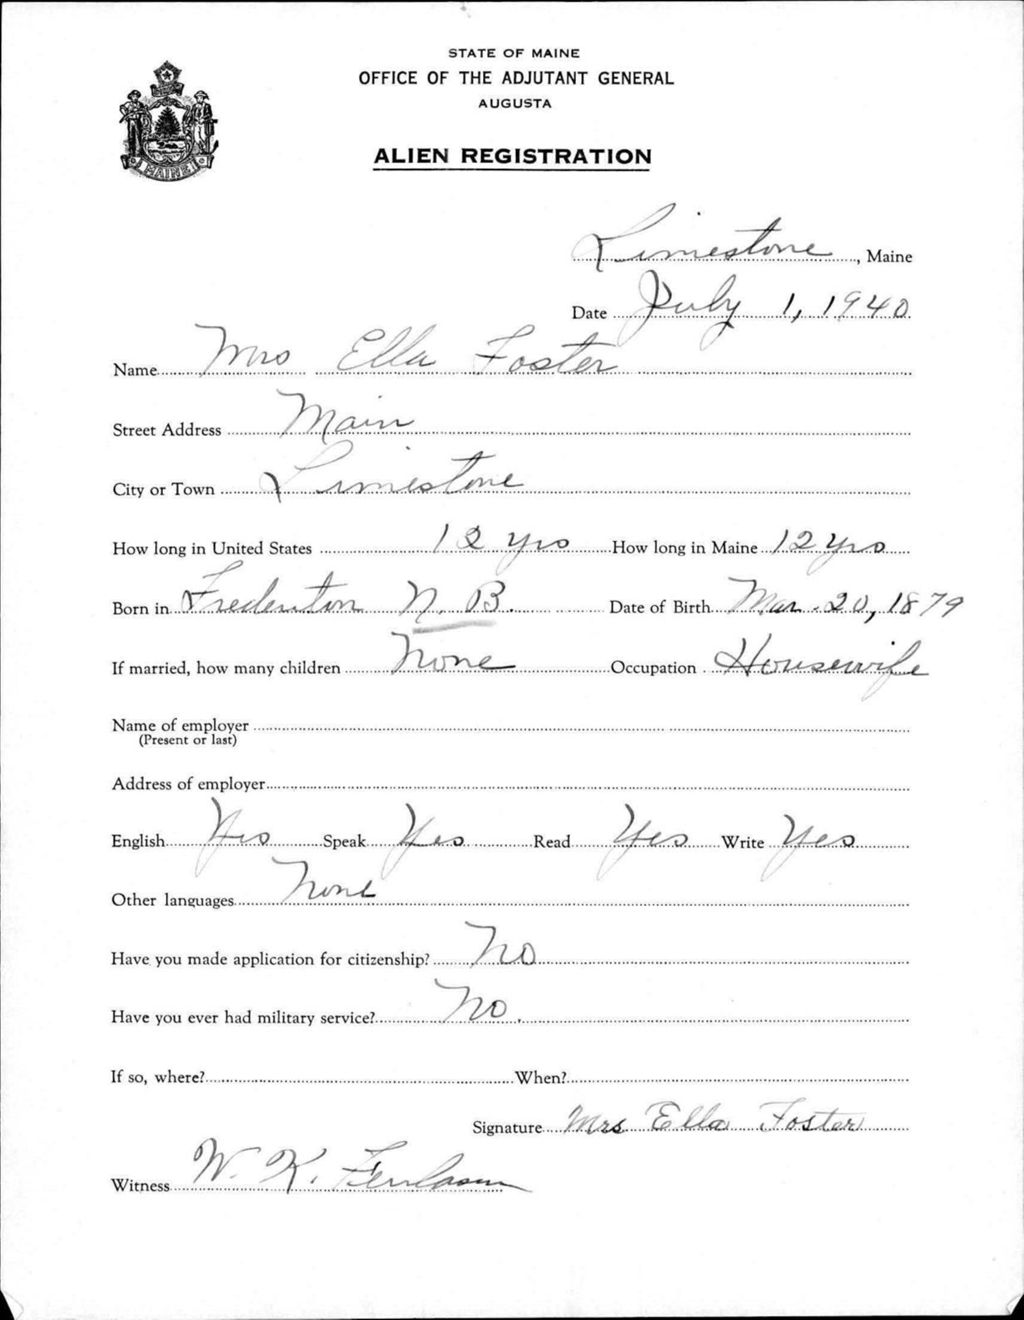 STATE OF MAINE
OFFICE OF THE ADJUTANT GENERAL
AUGUSTA
MAINE
ALIEN REGISTRATION
Limestone, Maine
Date July 1, 1940
Name Mrs Ella Foster
Street Address Main
City or Town Limestone
How long in United States 12 yrs How long in Maine 12 yrs
Born in Fredericton N.B. Date of Birth Mar. 20, 1879
If married, how many children None Occupation Housewife
Name of employer
(Present or last)
Address of employer
English Yes Speak Yes Read Yes Write Yes
Other languages None
Have you made application for citizenship? No
Have you ever had military service? No.
If so, where? When?
Signature Mrs Ella Foster
Witness W. K.